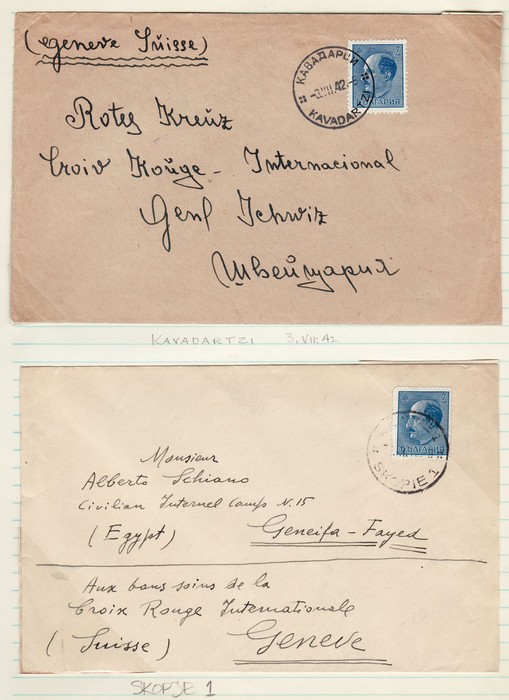 (Geneve Süisse)
КАВАДАРЦИ
-3.VII.42.-
KAVADARTZI
БЪЛГАРИЯ
Rotes Kreüz
Croix Roüge - Internacional
Genf Schwiz
Швейцария
KAVADARTZI 3.VII.42
БЪЛГАРИЯ
SKOPIE 1
Monsieur
Alberto Schiano
Civilian Internel Camp N.15
(Egypt) Geneifa-Fayed
Aux bons soins de la
Croix Rouge Internationale
(Suisse) Geneve
SKOPJE 1